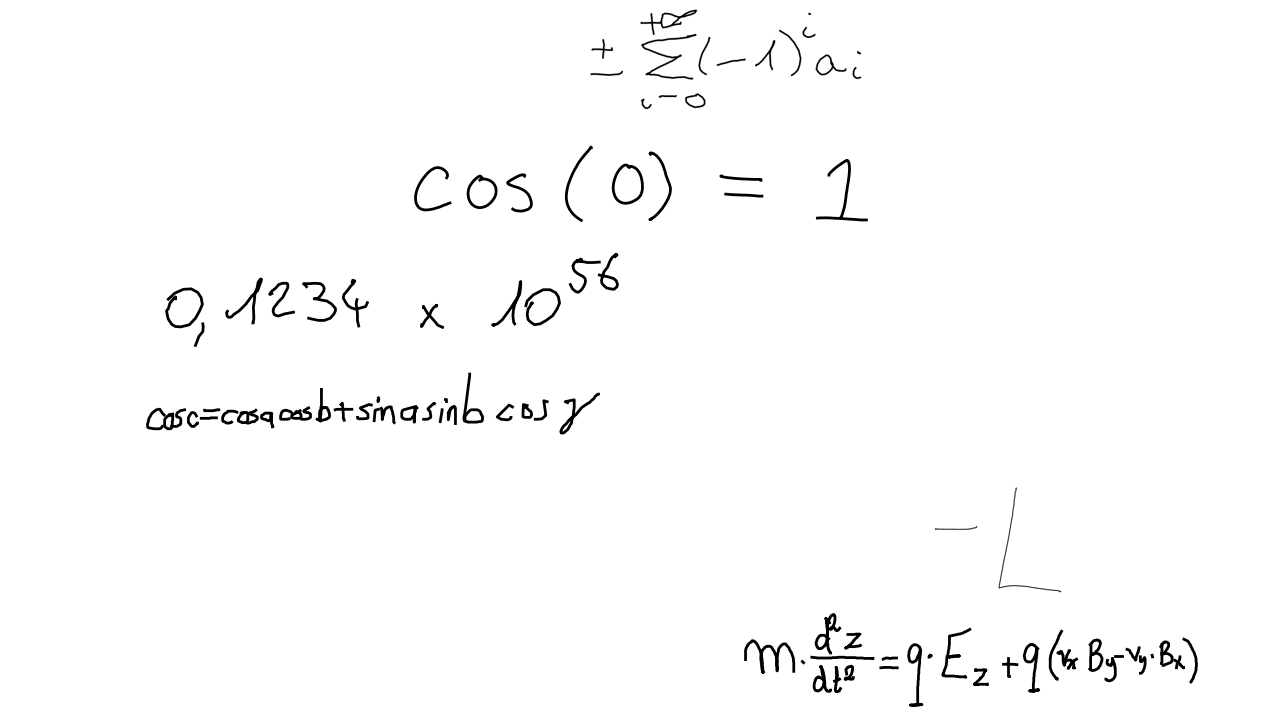 ± \sum_{i=0}^{+\infty} (-1)^i a_i
cos(0) = 1
0,1234 x 10^{56}
cos c = cos a cos b + sin a sin b cos γ
-L
m \cdot \frac{d^2 z}{dt^2} = q \cdot E_z + q (v_x B_y - v_y \cdot B_x)